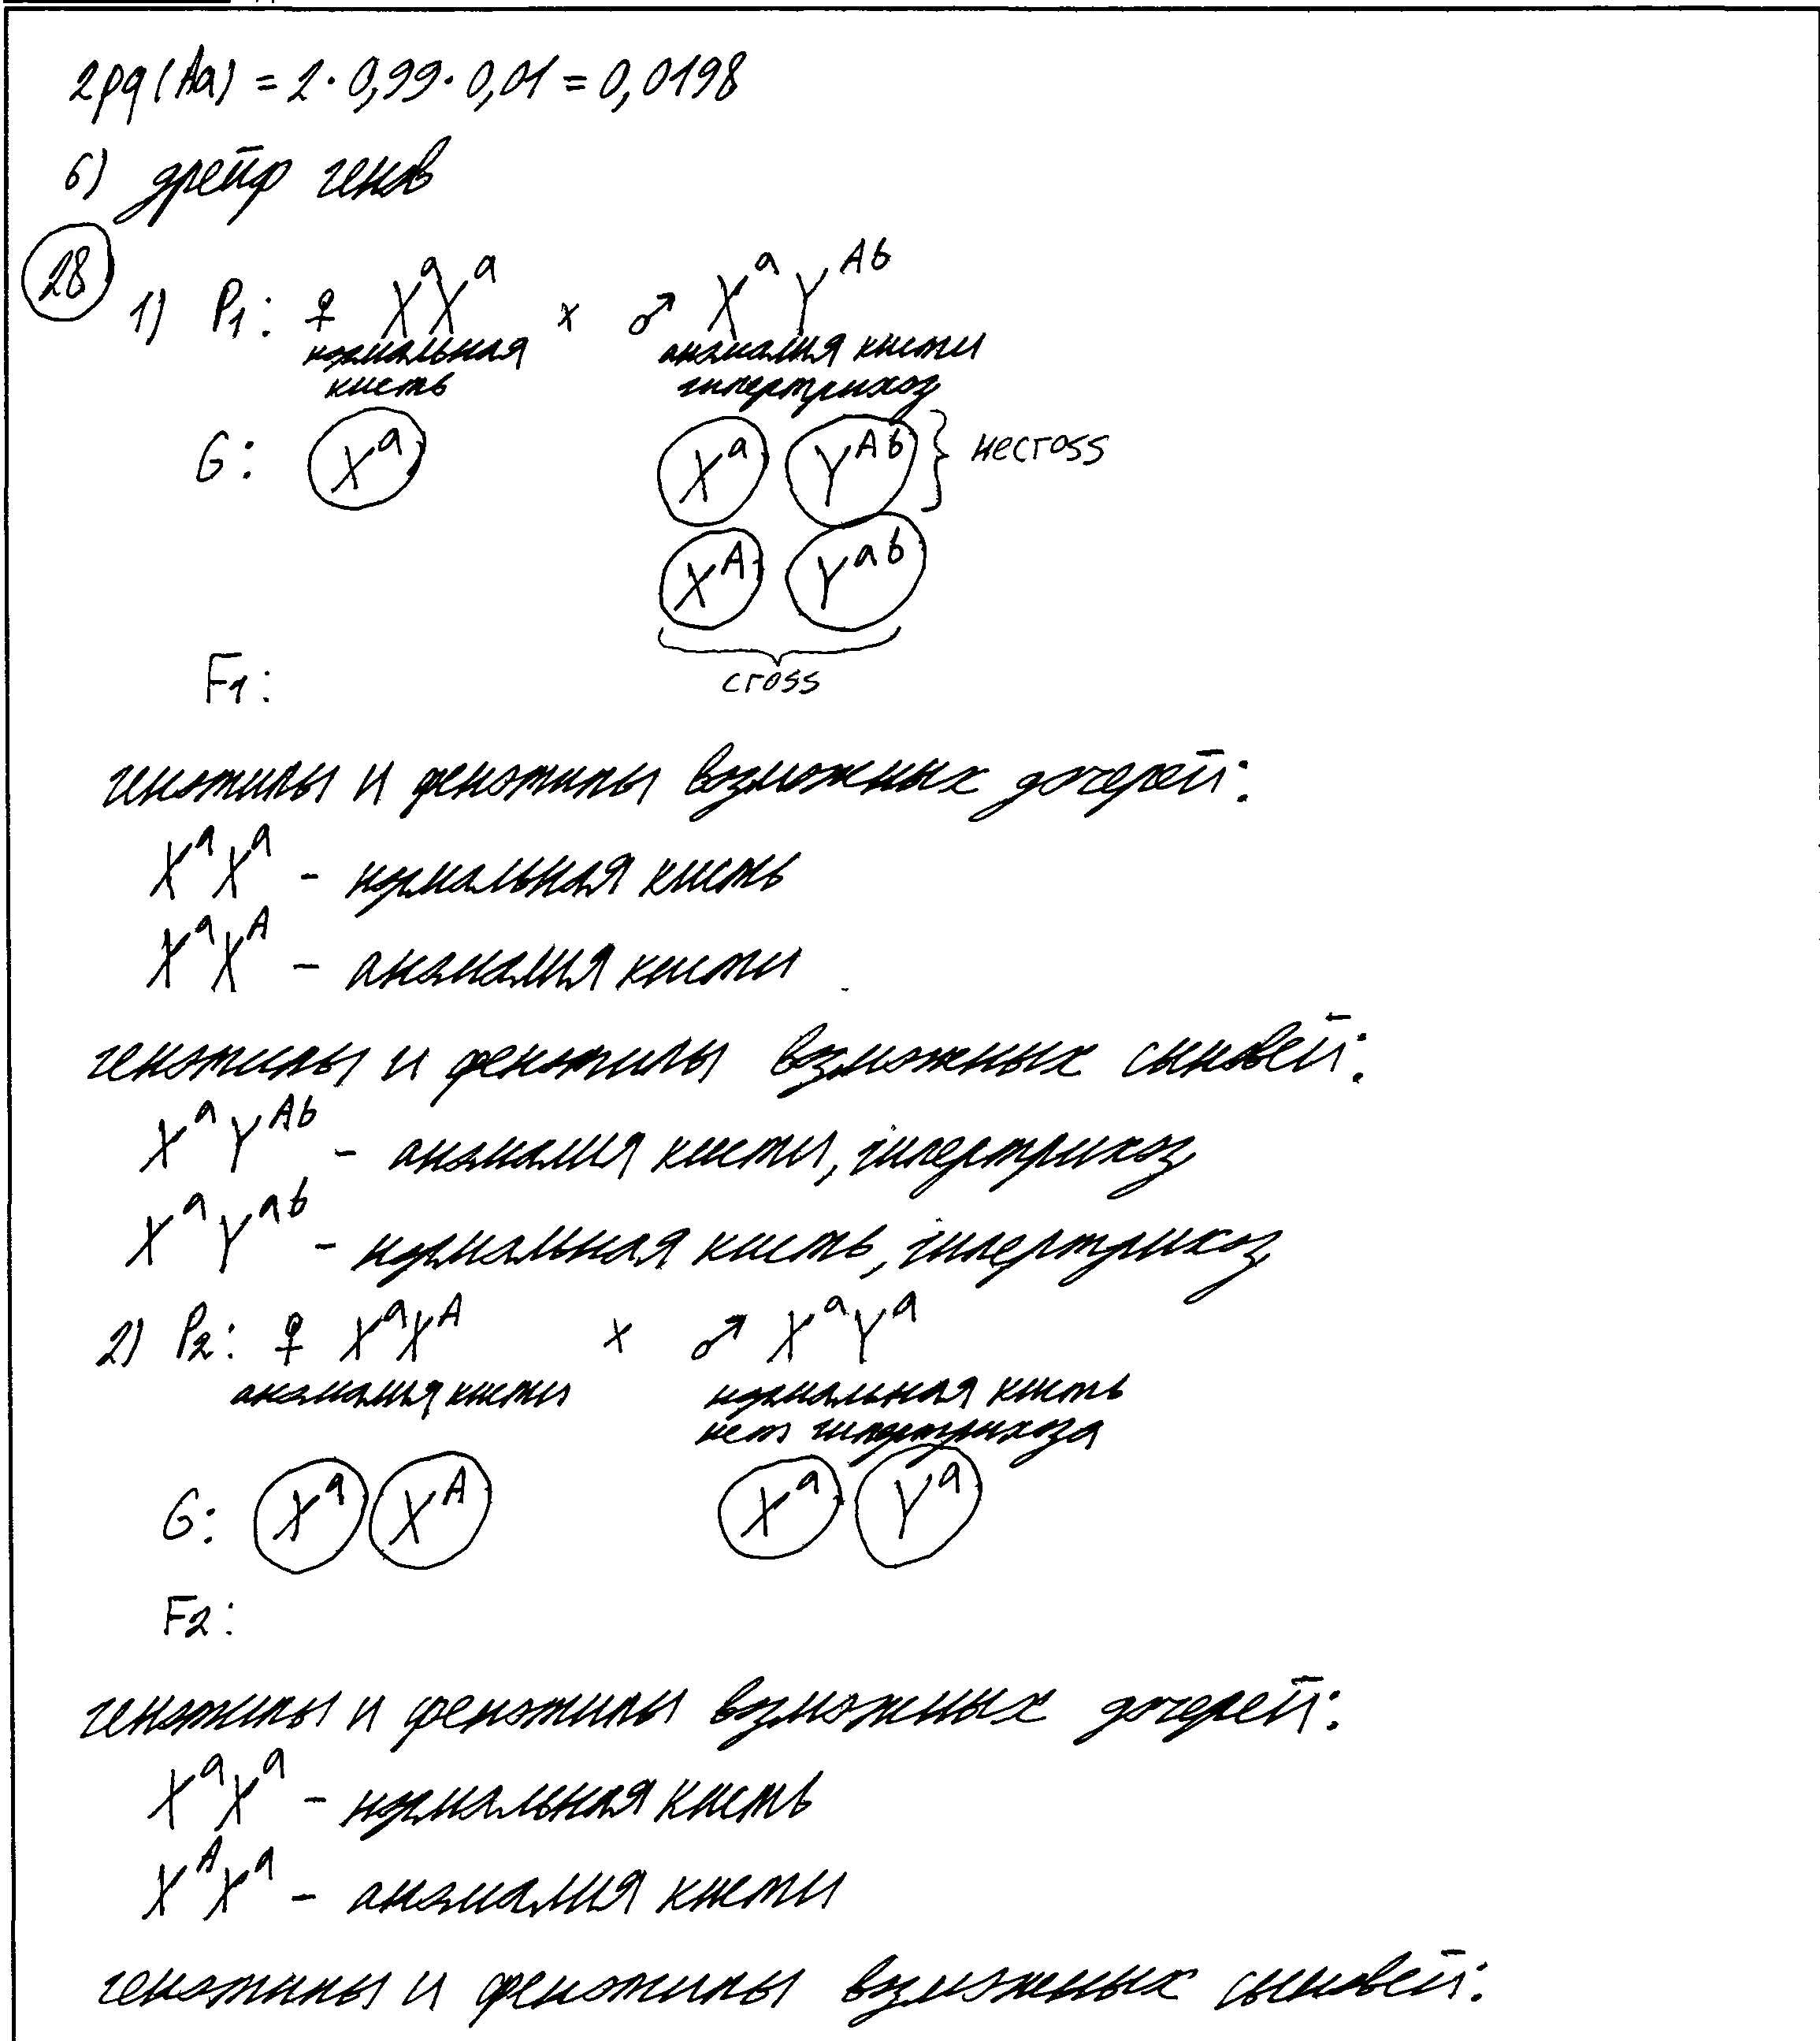 2pq(Aa) = 2 · 0,99 · 0,01 = 0,0198
6) дрейф генов
28 1) P1: ♀ XᵃXᵃ x ♂ XᵃYᴬᵇ
нормальная аномалия кисти
кисть гипертрихоз
G: Xᵃ Xᵃ Yᴬᵇ } неcross
Xᴬ Yᵃᵇ
F1: cross
генотипы и фенотипы возможных дочерей:
XᵃXᵃ - нормальная кисть
XᵃXᴬ - аномалия кисти
генотипы и фенотипы возможных сыновей:
XᵃYᴬᵇ - аномалия кисти, гипертрихоз
XᵃYᵃᵇ - нормальная кисть, гипертрихоз
2) P2: ♀ XᵃXᴬ x ♂ XᵃYᵃ
аномалия кисти нормальная кисть
нет гипертрихоза
G: Xᵃ Xᴬ Xᵃ Yᵃ
F2:
генотипы и фенотипы возможных дочерей:
XᵃXᵃ - нормальная кисть
XᴬXᵃ - аномалия кисти
генотипы и фенотипы возможных сыновей: